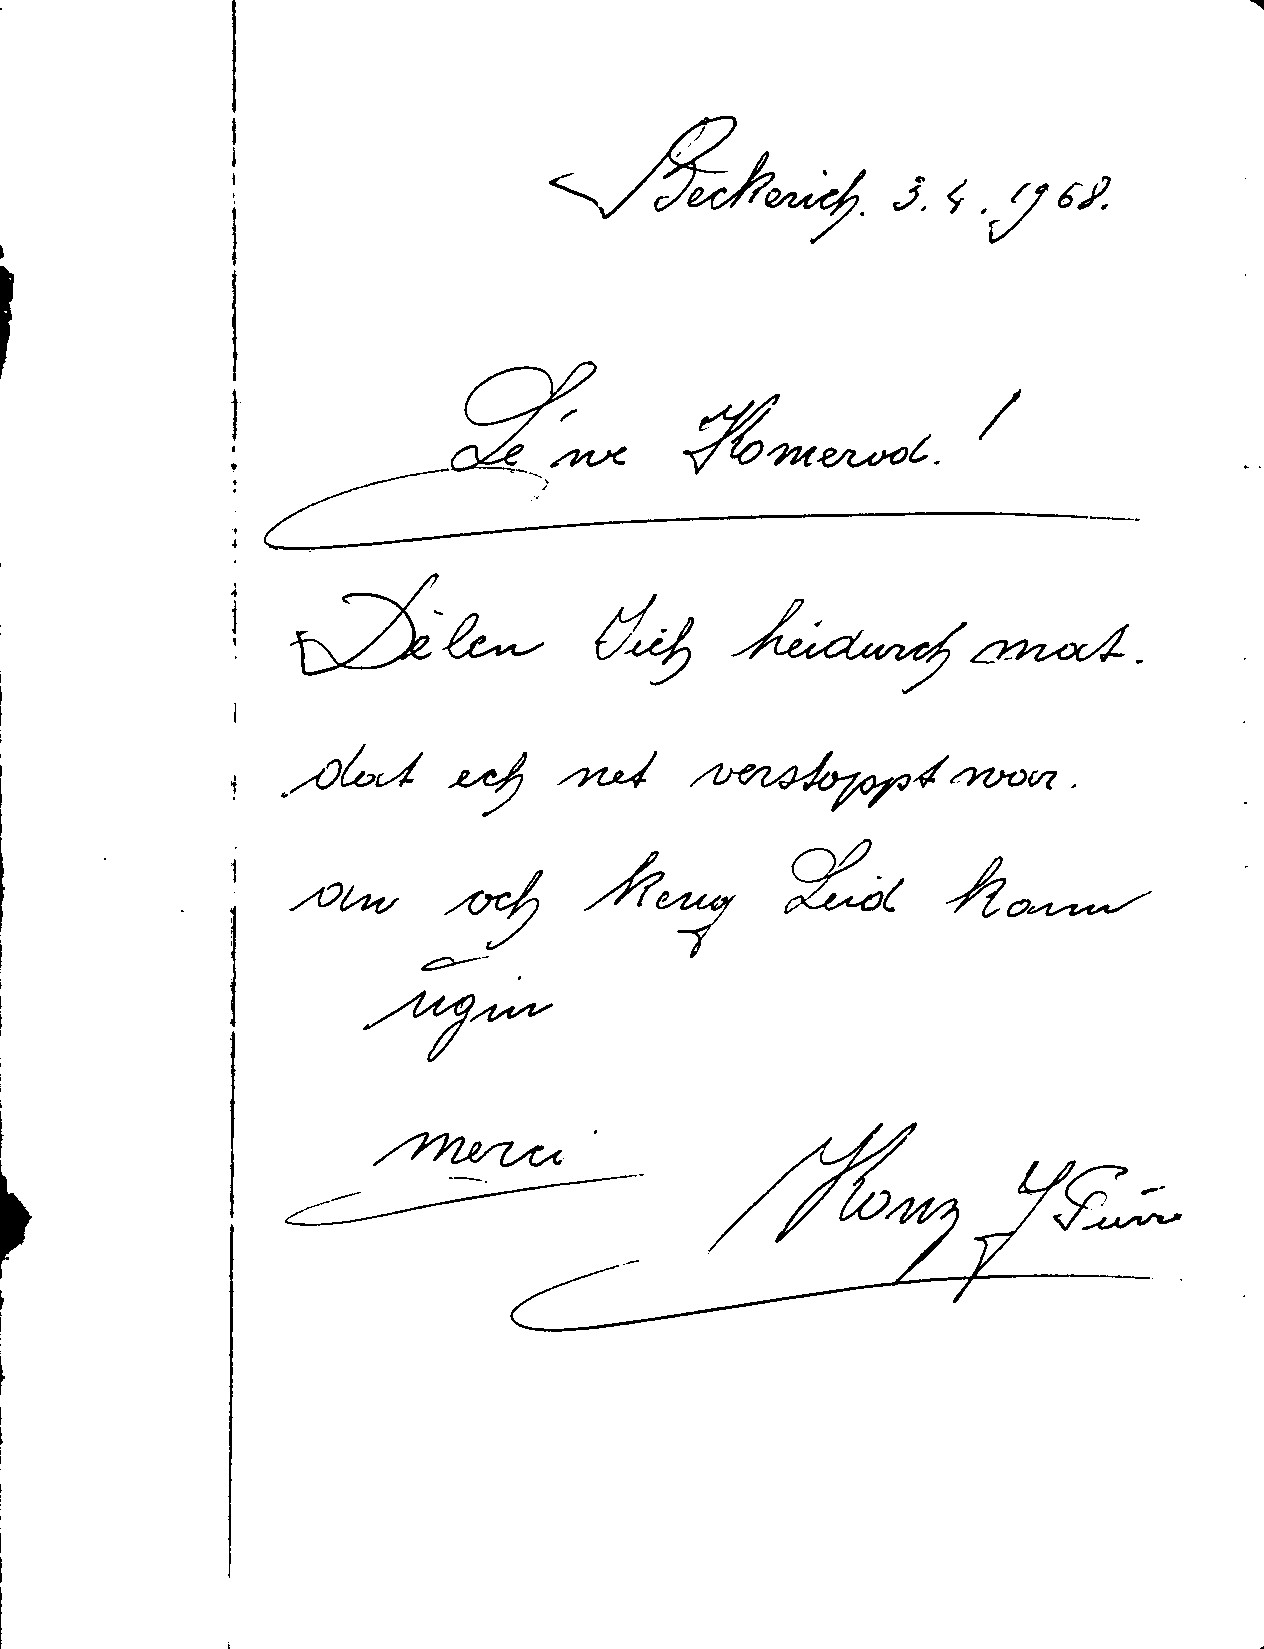 Beckerich. 3.4.1968.
Le'we Komerod!
Dèlen Iich heidurch mat.
dat ech net verstoppt war.
an och keng Leid kann
ũgin
merci
Konz J